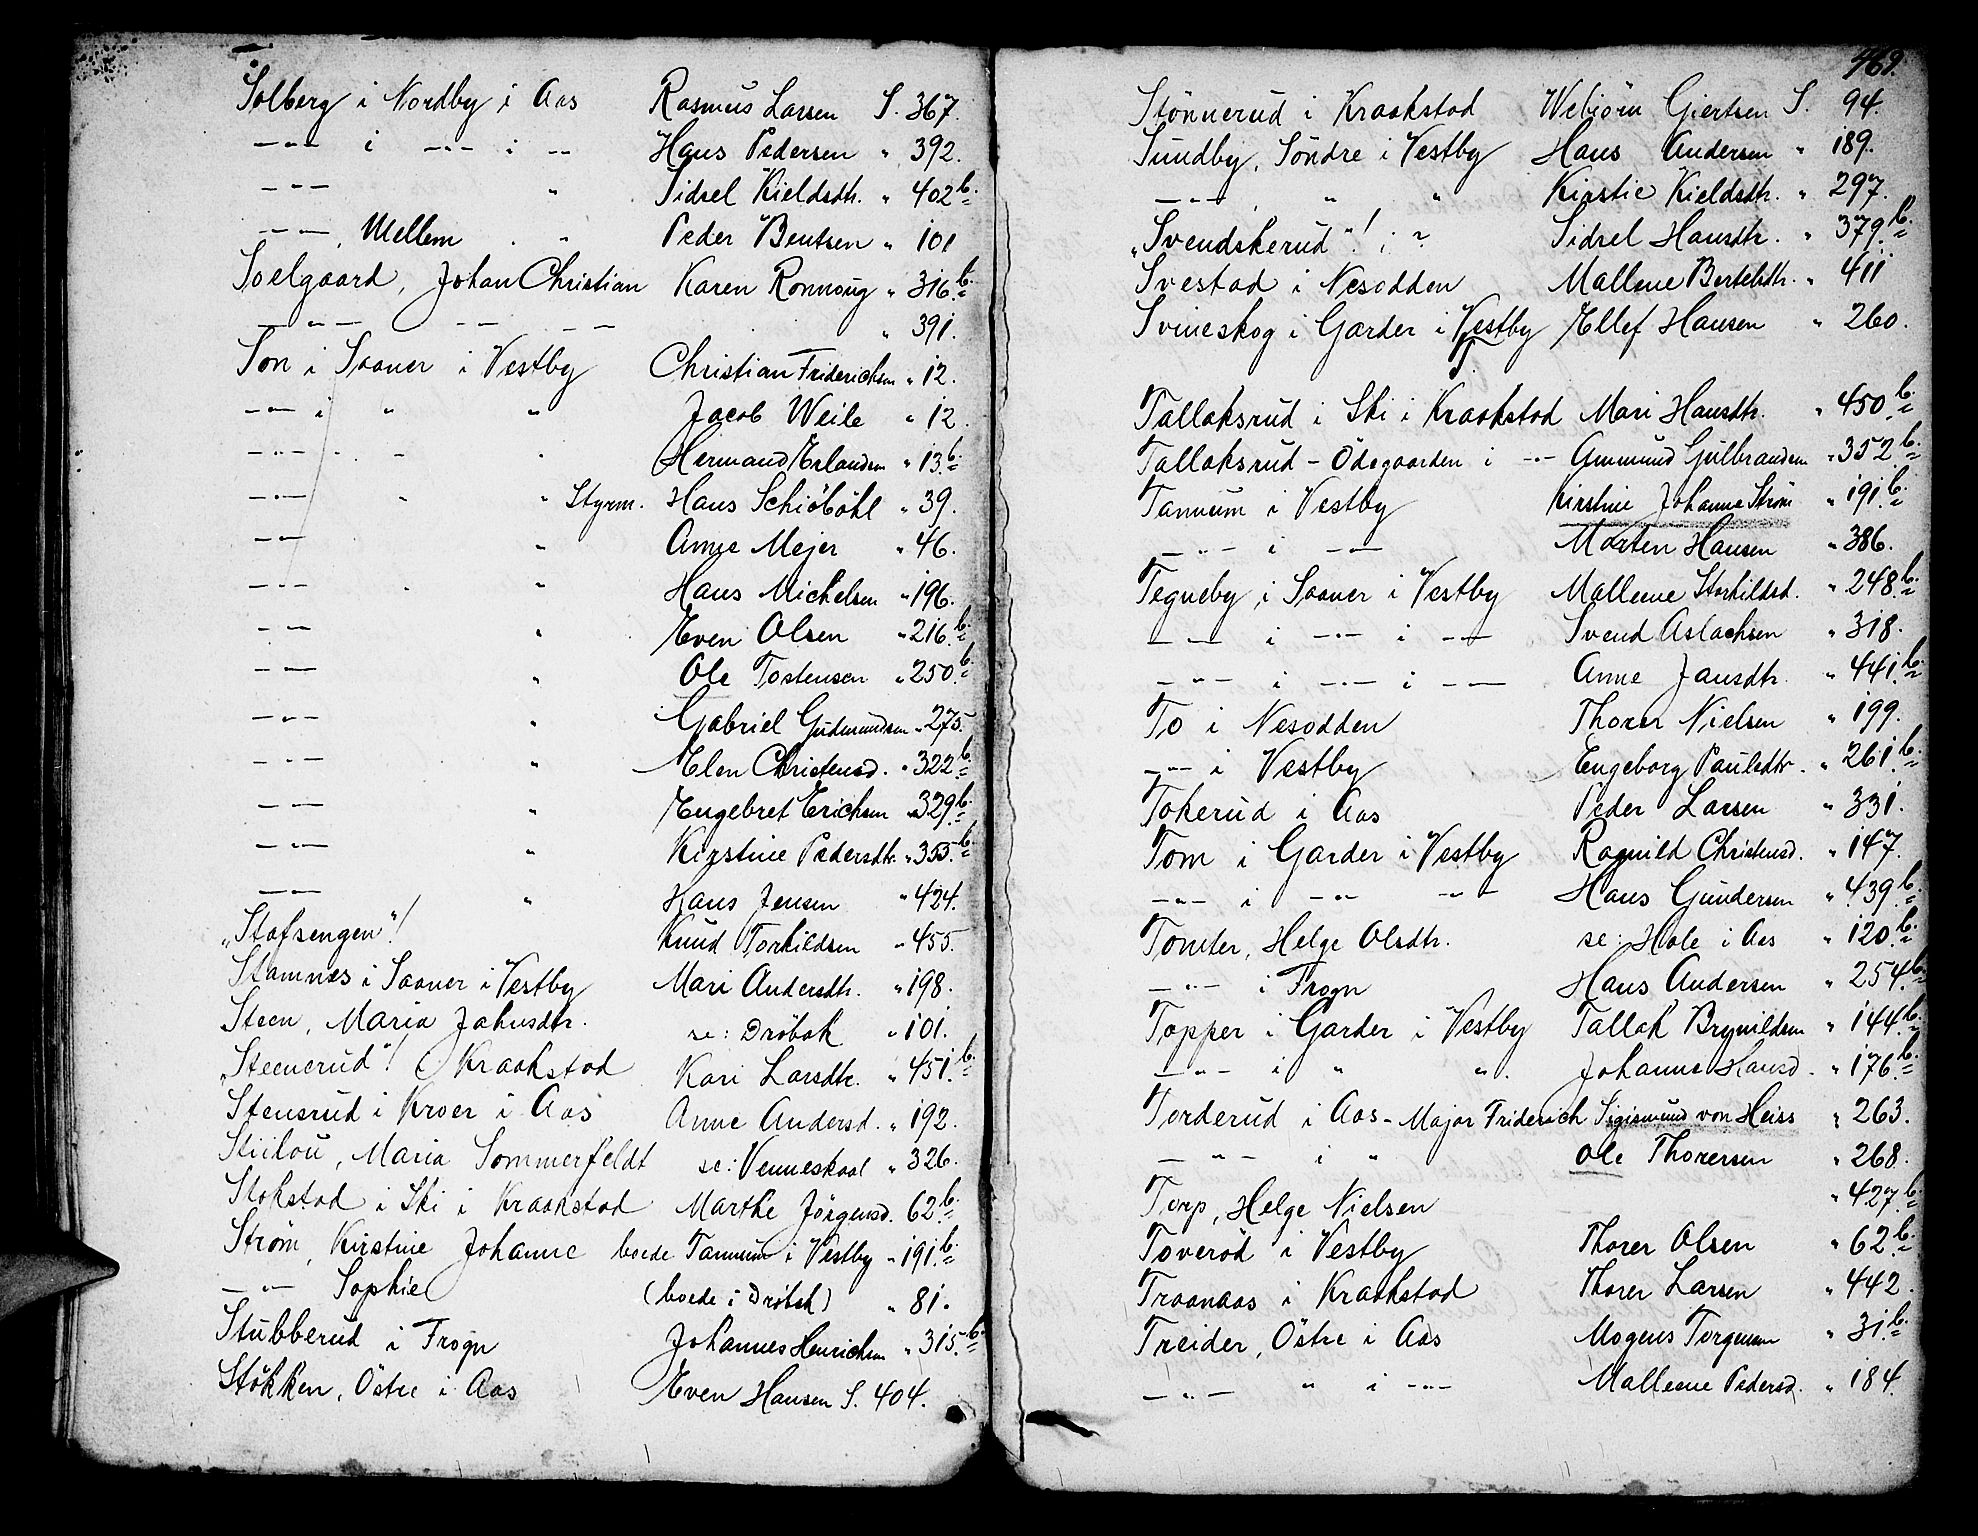 Solberg i Nordby i Aas Rasmus Larsen S. 367.
-"- i -"- i -"- Hans Pedersen " 392.
-"- " Sidsel Kieldsdtr. " 402 b.
-"-, Mellem " Peder Bentsen " 101
Soelgaard, Johan Christian Karen Ronnoug " 316 b.
-"- -"- -"- " 391.
Son i Saaner i Vestby Christian Friderichsen " 12.
-"- i " " Jacob Weile " 12.
-"- " " Hermand Erlandsen " 13 b.
-"- " " Styrm. Hans Schiöböhl " 39.
-"- " Anne Mejer " 46.
-"- " Hans Michelsen " 196.
-"- " Even Olsen " 216 b.
-"- " Ole Tostensen " 250 b.
-"- " Gabriel Gudmundsen " 275.
-"- " Elen Christensd. " 322 b.
-"- " Engebret Erichsen " 329 b.
-"- " Kirstine Pedersdtr. " 355 b.
-"- " Hans Jensen " 424.
"Stafsengen"! Knud Torkildsen " 455.
Stamnes i Saaner i Vestby Mari Andersdtr. " 198.
Steen, Maria Jahnsdtr. se: Dröbak " 101.
"Steenerud"! Kraakstad Kari Larsdtr. " 451 b.
Stensrud i Kroer i Aas Anne Andersd. " 192.
Stiikou, Maria Sommerfeldt se: Venneskaal " 326.
Stokstad i Ski i Kraakstad Marthe Jörgensd. 62 b.
Ström, Kirstine Johanne boede Tannum i Vestby " 191 b.
-"- Sophie (boede i Dröbak) " 81.
Stubberud i Frogn Johannes Henrichsen " 315 b.
Stökken, Östre i Aas Even Hansen S. 404.
469.
Stönnerud i Kraakstad Webiörn Giertsen S. 94.
Sundby, Söndre i Vestby Hans Andersen " 189.
-"- " " Kirstie Kieldsdtr. " 297.
"Svendskerud"! i ? Sidsel Hansdtr. " 379 b.
Svestad i Nesodden Mallene Bertelsdtr. " 411
Svineskog i Garder i Vestby Ellef Hansen " 260.
T.
Tallaksrud i Ski i Kraakstad Mari Hansdtr. " 450 b.
Tallaksrud - Ödegaarden i -"- Ammund Gulbrandsen " 352 b.
Tannum i Vestby Kirstine Johanne Ström " 191 b.
-"- i -"- Morten Hansen " 386.
Tegneby, i Saaner i Vestby Malleene Storkildsd. " 248 b.
-"- i -"- i -"- Svend Aslachsen " 318.
-"- i -"- i -"- Anne Jansdtr. " 441 b.
To i Nesodden Thorer Nielsen " 199.
-"- i Vestby Engeborg Paulsdtr. " 261 b.
Tokerud i Aas Peder Larsen " 331.
Tom i Garder i Vestby Ragnild Christensd. " 147.
-"- i -"- -"- Hans Gundersen " 439 b.
Tomter, Helge Olsdtr. se: Hole i Aas " 120 b.
-"- i Frogn Hans Andersen " 254 b.
Topper i Garder i Vestby Tallak Brynildsen " 144 b.
-"- i " " Johanne Hansd. " 176 b.
Torderud i Aas - Major Friderich Sigismund von Heiss " 263.
-"- i " Ole Thorersen " 268.
Torp, Helge Nielsen " 427 b.
Toveröd i Vestby Thorer Olsen " 62 b.
Traanaas i Kraakstad Thorer Larsen " 442
Treider, Östre i Aas Mogens Torgersen " 31 b.
-"- " i -"- Malleene Pedersd. " 184.